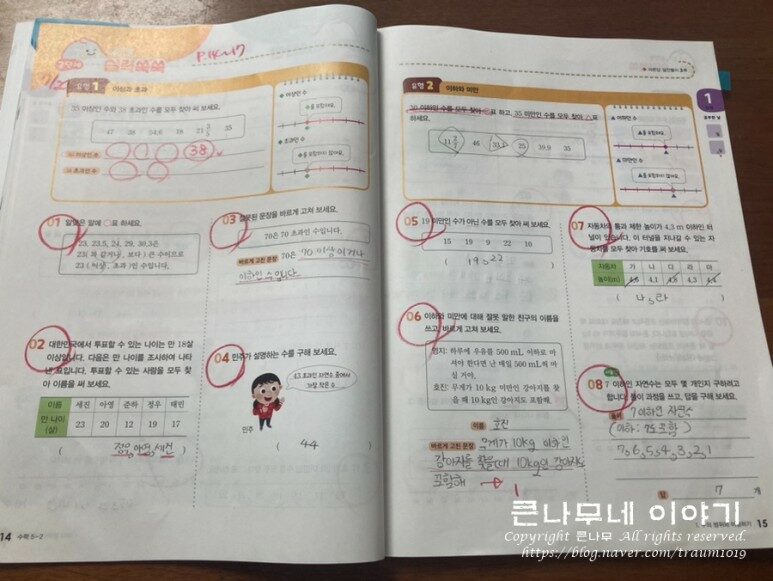 P.14~17
유형 1 이상과 초과
35 이상인 수와 38 초과인 수를 모두 찾아 써 보세요.
47 38 54.6 18 35
35 이상인 수
38
38 초과인 수
이상인 수
초과인 수
01 알맞은 말에 ○표 하세요.
23, 23.5, 24, 29, 30.3은
23( 와 같거나, 보다 ) 큰 수이므로
23 ( 이상, 초과 )인 수입니다.
02 대한민국에서 투표할 수 있는 나이는 만 18살
이상입니다. 다음은 만 나이를 조사하여 나타
낸 표입니다. 투표할 수 있는 사람을 모두 찾
아 이름을 써 보세요.
이름 세진 아영 준하 정우 태민
만 나이(살) 23 20 12 19 17
( 정우, 아영, 세진 )
03 잘못된 문장을 바르게 고쳐 보세요.
70은 70 초과인 수입니다.
바르게 고친 문장 70은 70 이상이거나
이하인 수입니다.
04 민주가 설명하는 수를 구해 보세요.
43 초과인 자연수 중에서
가장 작은 수
민주
( 44 )
14 수학 5-2
유형 2 이하와 미만
30 이하인 수를 모두 찾아 ○표 하고, 35 미만인 수를 모두 찾아 △표
하세요.
46 25 39.9 35
▲ 이하인 수
▲ 미만인 수
1
공부한 날
05 19 미만인 수가 아닌 수를 모두 찾아 써 보세요.
15 19 9 22 10
( 19, 22 )
06 이하와 미만에 대해 잘못 말한 친구의 이름을
쓰고, 바르게 고쳐 보세요.
명지: 하루에 우유를 500 mL 이하로 마
셔야 한다면 난 매일 500 mL씩 마
실 거야.
호진: 무게가 10 kg 미만인 강아지를 찾
을 때 10 kg인 강아지도 포함해.
이름 호진
바르게 고친 문장 무게가 10kg 이하인
강아지를 찾을 때 10kg인 강아지도
포함해
07 자동차의 통과 제한 높이가 4.3 m 이하인 터
널이 있습니다. 이 터널을 지나갈 수 있는 자
동차를 모두 찾아 기호를 써 보세요.
자동차 가 나 다 라 마
높이(m) 4.6 4.1 4.8 4.3 4.4
( 나, 라 )
08 7 이하인 자연수는 모두 몇 개인지 구하려고
합니다. 풀이 과정을 쓰고, 답을 구해 보세요.
풀이 7 이하인 자연수
(이하: 7도 포함)
7, 6, 5, 4, 3, 2, 1
답 7 개
15
큰나무네 이야기
Copyright 큰나무 All rights reserved.
https://blog.naver.com/traum1019